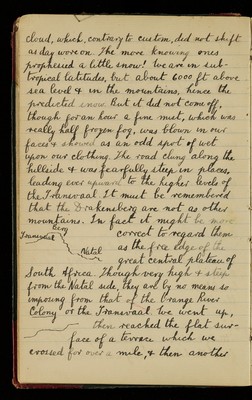 cloud, which, contrary to custom, did not shift
as day wore on. The more knowing ones
prophesied a little snow! We are in sub-
tropical latitudes, but about 6000 ft above
sea level & in the mountains, hence the
predicted snow. But it did not come off,
though for an hour a fine mist, which was
really half frozen fog, was blown in our
faces & showed as an odd spot of wet
upon our clothing. The road clung along the
hillside & was fearfully steep in places,
leading ever upward to the higher levels of
the Transvaal. It must be remembered
that the Drakensberg are not as other
mountains. In fact it might be more
correct to regard them
as the free edge of the
great central plateau of
Berg
Transvaal
Natal
South Africa. Though very high & steep
from the Natal side, they are by no means so
imposing from that of the Orange River
Colony or the Transvaal. We went up,
then reached the flat sur-
face of a terrace which we
crossed for over a mile, & then another